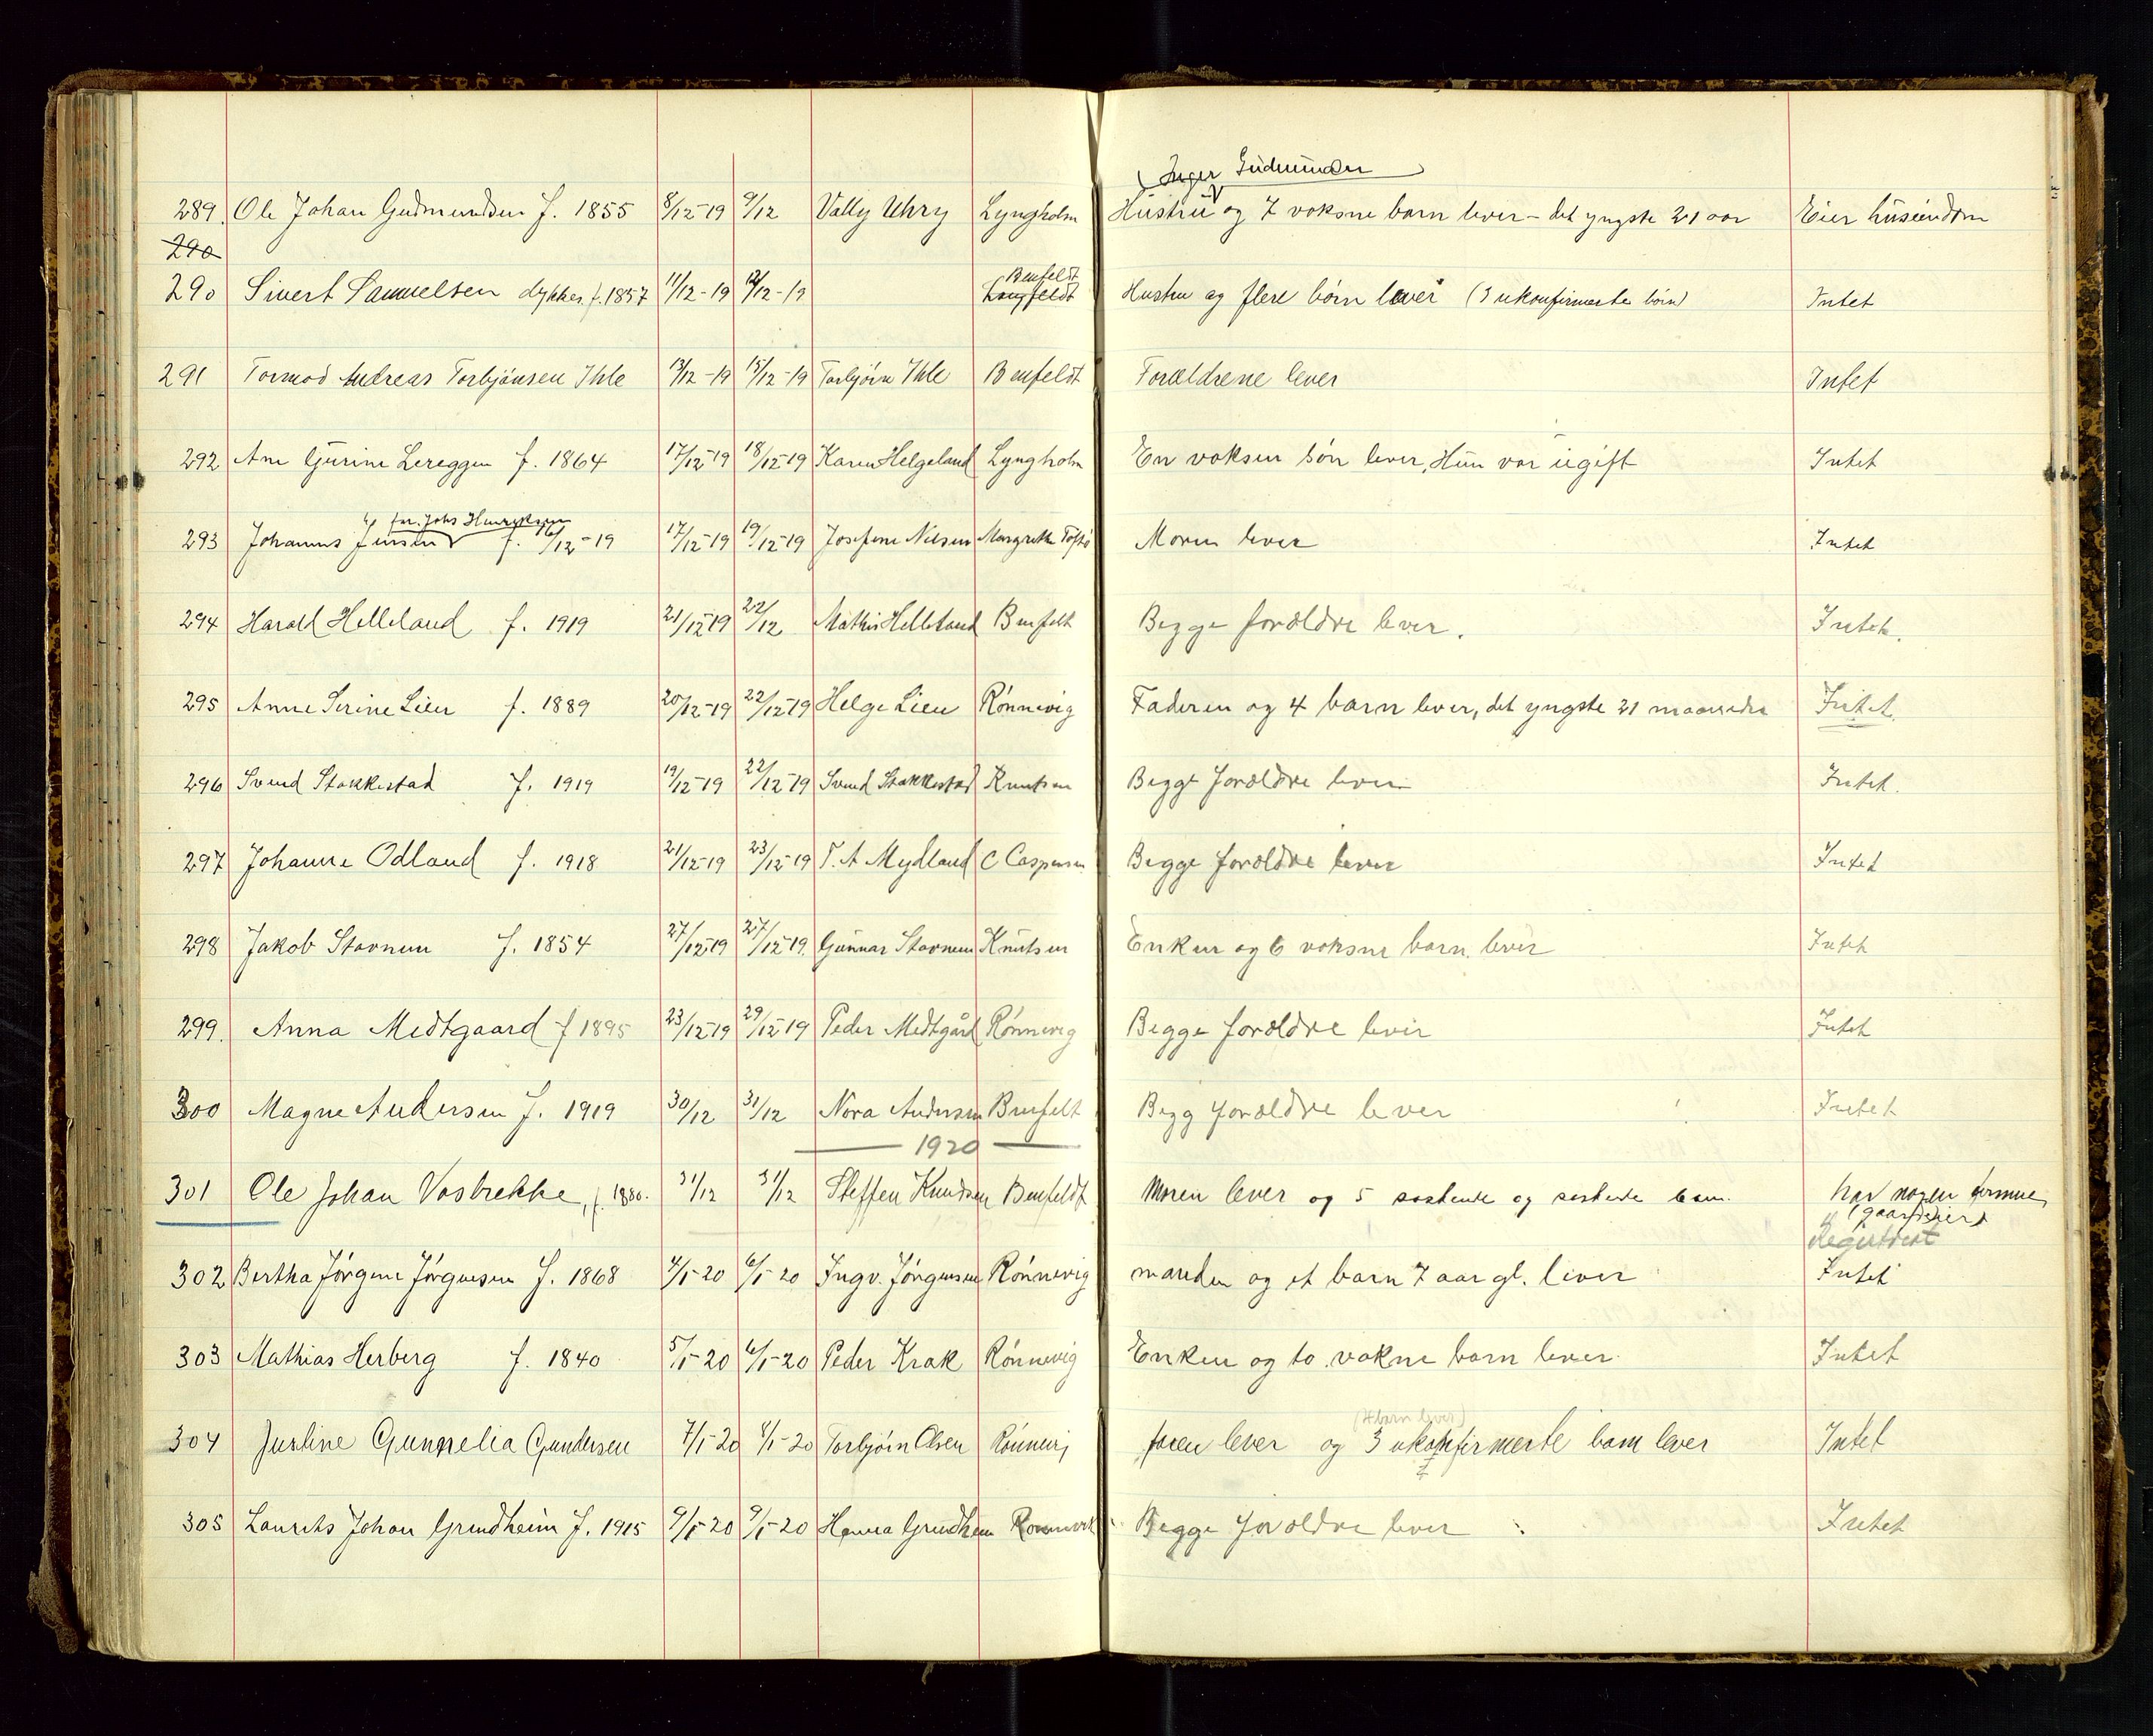 (Inger Gudmundsen)
289. Ole Johan Gudmundsen f. 1855 8/12-19 9/12 Vally Uhry Lyngholm Hustru og 7 voksne barn lever - det yngste 21 aar Eier huseiendom
290
290 Sivert Samuelsen dykker f. 1857 11/12-19 12/12-19 Benfeldt Hustru og flere börn lever (3 ukonfirmerte börn) Intet
291 Tormod Andreas Torbjönsen Ihle 13/12-19 15/12-19 Torbjörn Ihle Benfeldt Forældrene lever Intet
292 Ane Gurine Lereggen f. 1864 17/12-19 18/12-19 Karen Helgeland Lyngholm En voksen sön lever, Hun var ugift Intet
far. Johs Henriksen
293 Johannes Jensen f. 16/12-19 17/12-19 19/12-19 Josefine Nilsen Margrethe Moren lever Intet
294 Harald Helleland f. 1919 21/12-19 22/12 Mathis Helleland Benfelt Begge forældre lever. Intet.
295 Anne Serine Lien f. 1889 20/12-19 22/12-19 Helge Lien Rönnevig Faderen og 4 barn lever, det yngste 21 maaneder Intet.
296 Svend Stakkestad f. 1919 19/12-19 22/12-19 Svend Stakkestad Knutsen Begge forældre lever Intet.
297 Johanne Odland f. 1918 21/12-19 23/12-19 T. A Mydland C Caspersen Begge forældre lever Intet
298 Jakob Stavnum f. 1854 27/12-19 27/12-19. Gunnar Stavnum Knutsen Enken og 6 voksne barn lever Intet
299. Anna Medtgaard f 1895 23/12-19 29/12-19 Peder Medtgård Rönnevig Begge forældre lever Intet
300 Magne Andersen f. 1919 30/12 31/12 Nora Andersen Benfelt Begg forældre lever Intet
1920
301 Ole Johan Vostrekke, f. 1880. 31/12 31/12 Steffen Knudsen Benfeldt Moren lever og 5 söskende og söskende barn. har nogen formue
(gaardeier)
Registrert
302 Bertha Jörgine Jörgensen f. 1868 4/1-20 6/1-20 Ingv. Jörgensen Rönnevig manden og et barn 7 aar gl. lever Intet
303 Mathias Herberg f. 1840 5/1-20 6/1-20 Peder Krak Rönnevig Enken og to vokne barn lever. Intet
(4 barn lever)
304 Justine Gunnelia Gundersen 7/1-20 8/1-20 Torbjörn Olsen Rönnevig faren lever og 3 ukonfirmerte barn lever Intet
305 Laurits Johan Grindheim f. 1915 9/1-20 9/1-20 Hanna Grindheim Begge forældre lever Intet